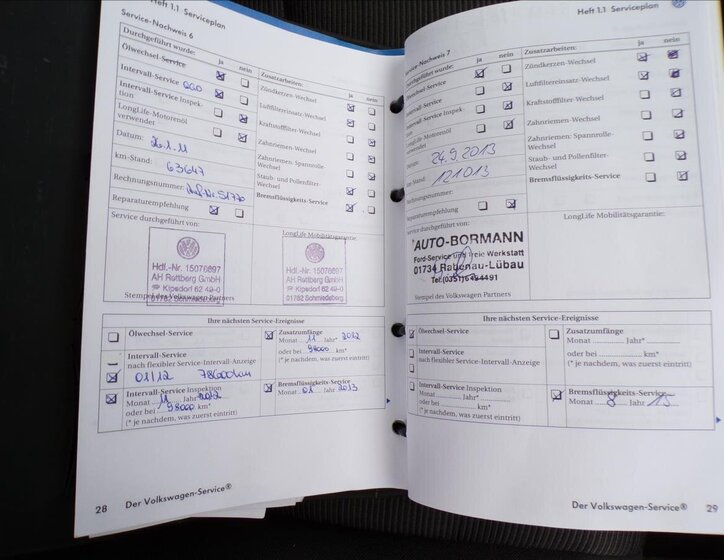 Heft 1.1 Serviceplan
Service-Nachweis 6
Durchgeführt wurde:
ja
nein
Ölwechsel-Service
Intervall-Service
Intervall-Service Inspek-
tion
LongLife-Motorenöl
verwendet
Datum: 26.1.11
km-Stand: 63647
Rechnungsnummer:
Reparaturempfehlung
Service durchgeführt von:
Hdf.-Nr. 15076697
AH Rottberg GmbH
Kipsdorf 62 49-0
01762 Schmiedeberg
Stempel des Volkswagen Partners
Zusatzarbeiten:
ja
nein
Zündkerzen-Wechsel
Luftfiltereinsatz-Wechsel
Kraftstofffilter-Wechsel
Zahnriemen-Wechsel
Zahnriemen: Spannrolle-
Wechsel
Staub- und Pollenfilter-
Wechsel
Bremsflüssigkeits-Service
LongLife Mobilitätsgarantie:
Hdf.-Nr. 15076697
AH Rottberg GmbH
Kipsdorf 62 49-0
01762 Schmiedeberg
Ihre nächsten Service-Ereignisse
Ölwechsel-Service
Intervall-Service
nach flexibler Service-Intervall-Anzeige
01/12 78000km
Intervall-Service Inspektion
Monat 11 Jahr* 2012
oder bei 98000 km*
(* je nachdem, was zuerst eintritt)
Zusatzumfänge
Monat 11 Jahr* 2012
oder bei 98000 km*
(* je nachdem, was zuerst eintritt)
Bremsflüssigkeits-Service
Monat 01 Jahr 2013
28
Der Volkswagen-Service®
Heft 1.1 Serviceplan
Service-Nachweis 7
Durchgeführt wurde:
ja
nein
Ölwechsel-Service
Intervall-Service
Intervall-Service Inspek-
tion
LongLife-Motorenöl
verwendet
Datum: 24.9.2013
km-Stand: 121013
Rechnungsnummer:
Reparaturempfehlung
Service durchgeführt von:
AUTO-BORMANN
Ford-Service und freie Werkstatt
01734 Rabenau-Lübau
Tel.(0351)6494491
Stempel des Volkswagen Partners
Zusatzarbeiten:
ja
nein
Zündkerzen-Wechsel
Luftfiltereinsatz-Wechsel
Kraftstofffilter-Wechsel
Zahnriemen-Wechsel
Zahnriemen: Spannrolle-
Wechsel
Staub- und Pollenfilter-
Wechsel
Bremsflüssigkeits-Service
LongLife Mobilitätsgarantie:
Ihre nächsten Service-Ereignisse
Ölwechsel-Service
Intervall-Service
nach flexibler Service-Intervall-Anzeige
Intervall-Service Inspektion
Monat Jahr*
oder bei km*
(* je nachdem, was zuerst eintritt)
Zusatzumfänge
Monat Jahr*
oder bei km*
(* je nachdem, was zuerst eintritt)
Bremsflüssigkeits-Service
Monat 8 Jahr 15
Der Volkswagen-Service®
29